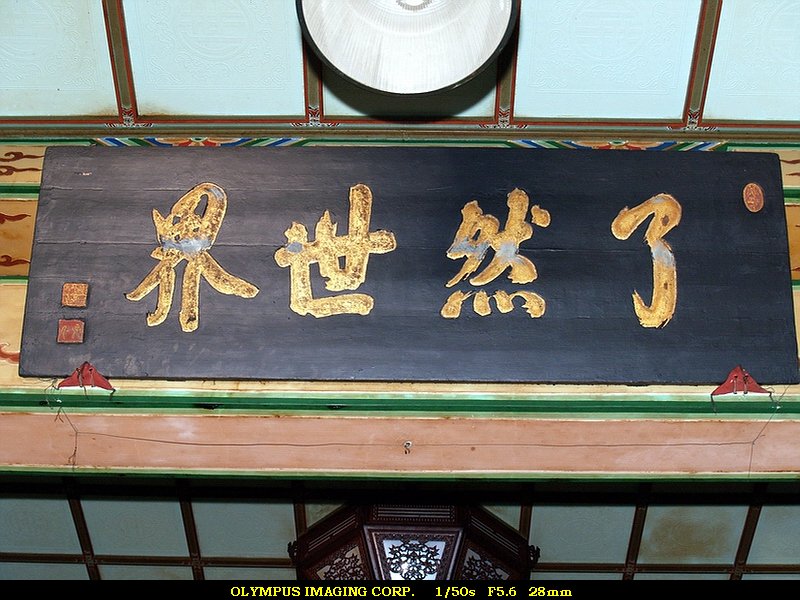 了然世界
OLYMPUS IMAGING CORP. 1/50s F5.6 28mm